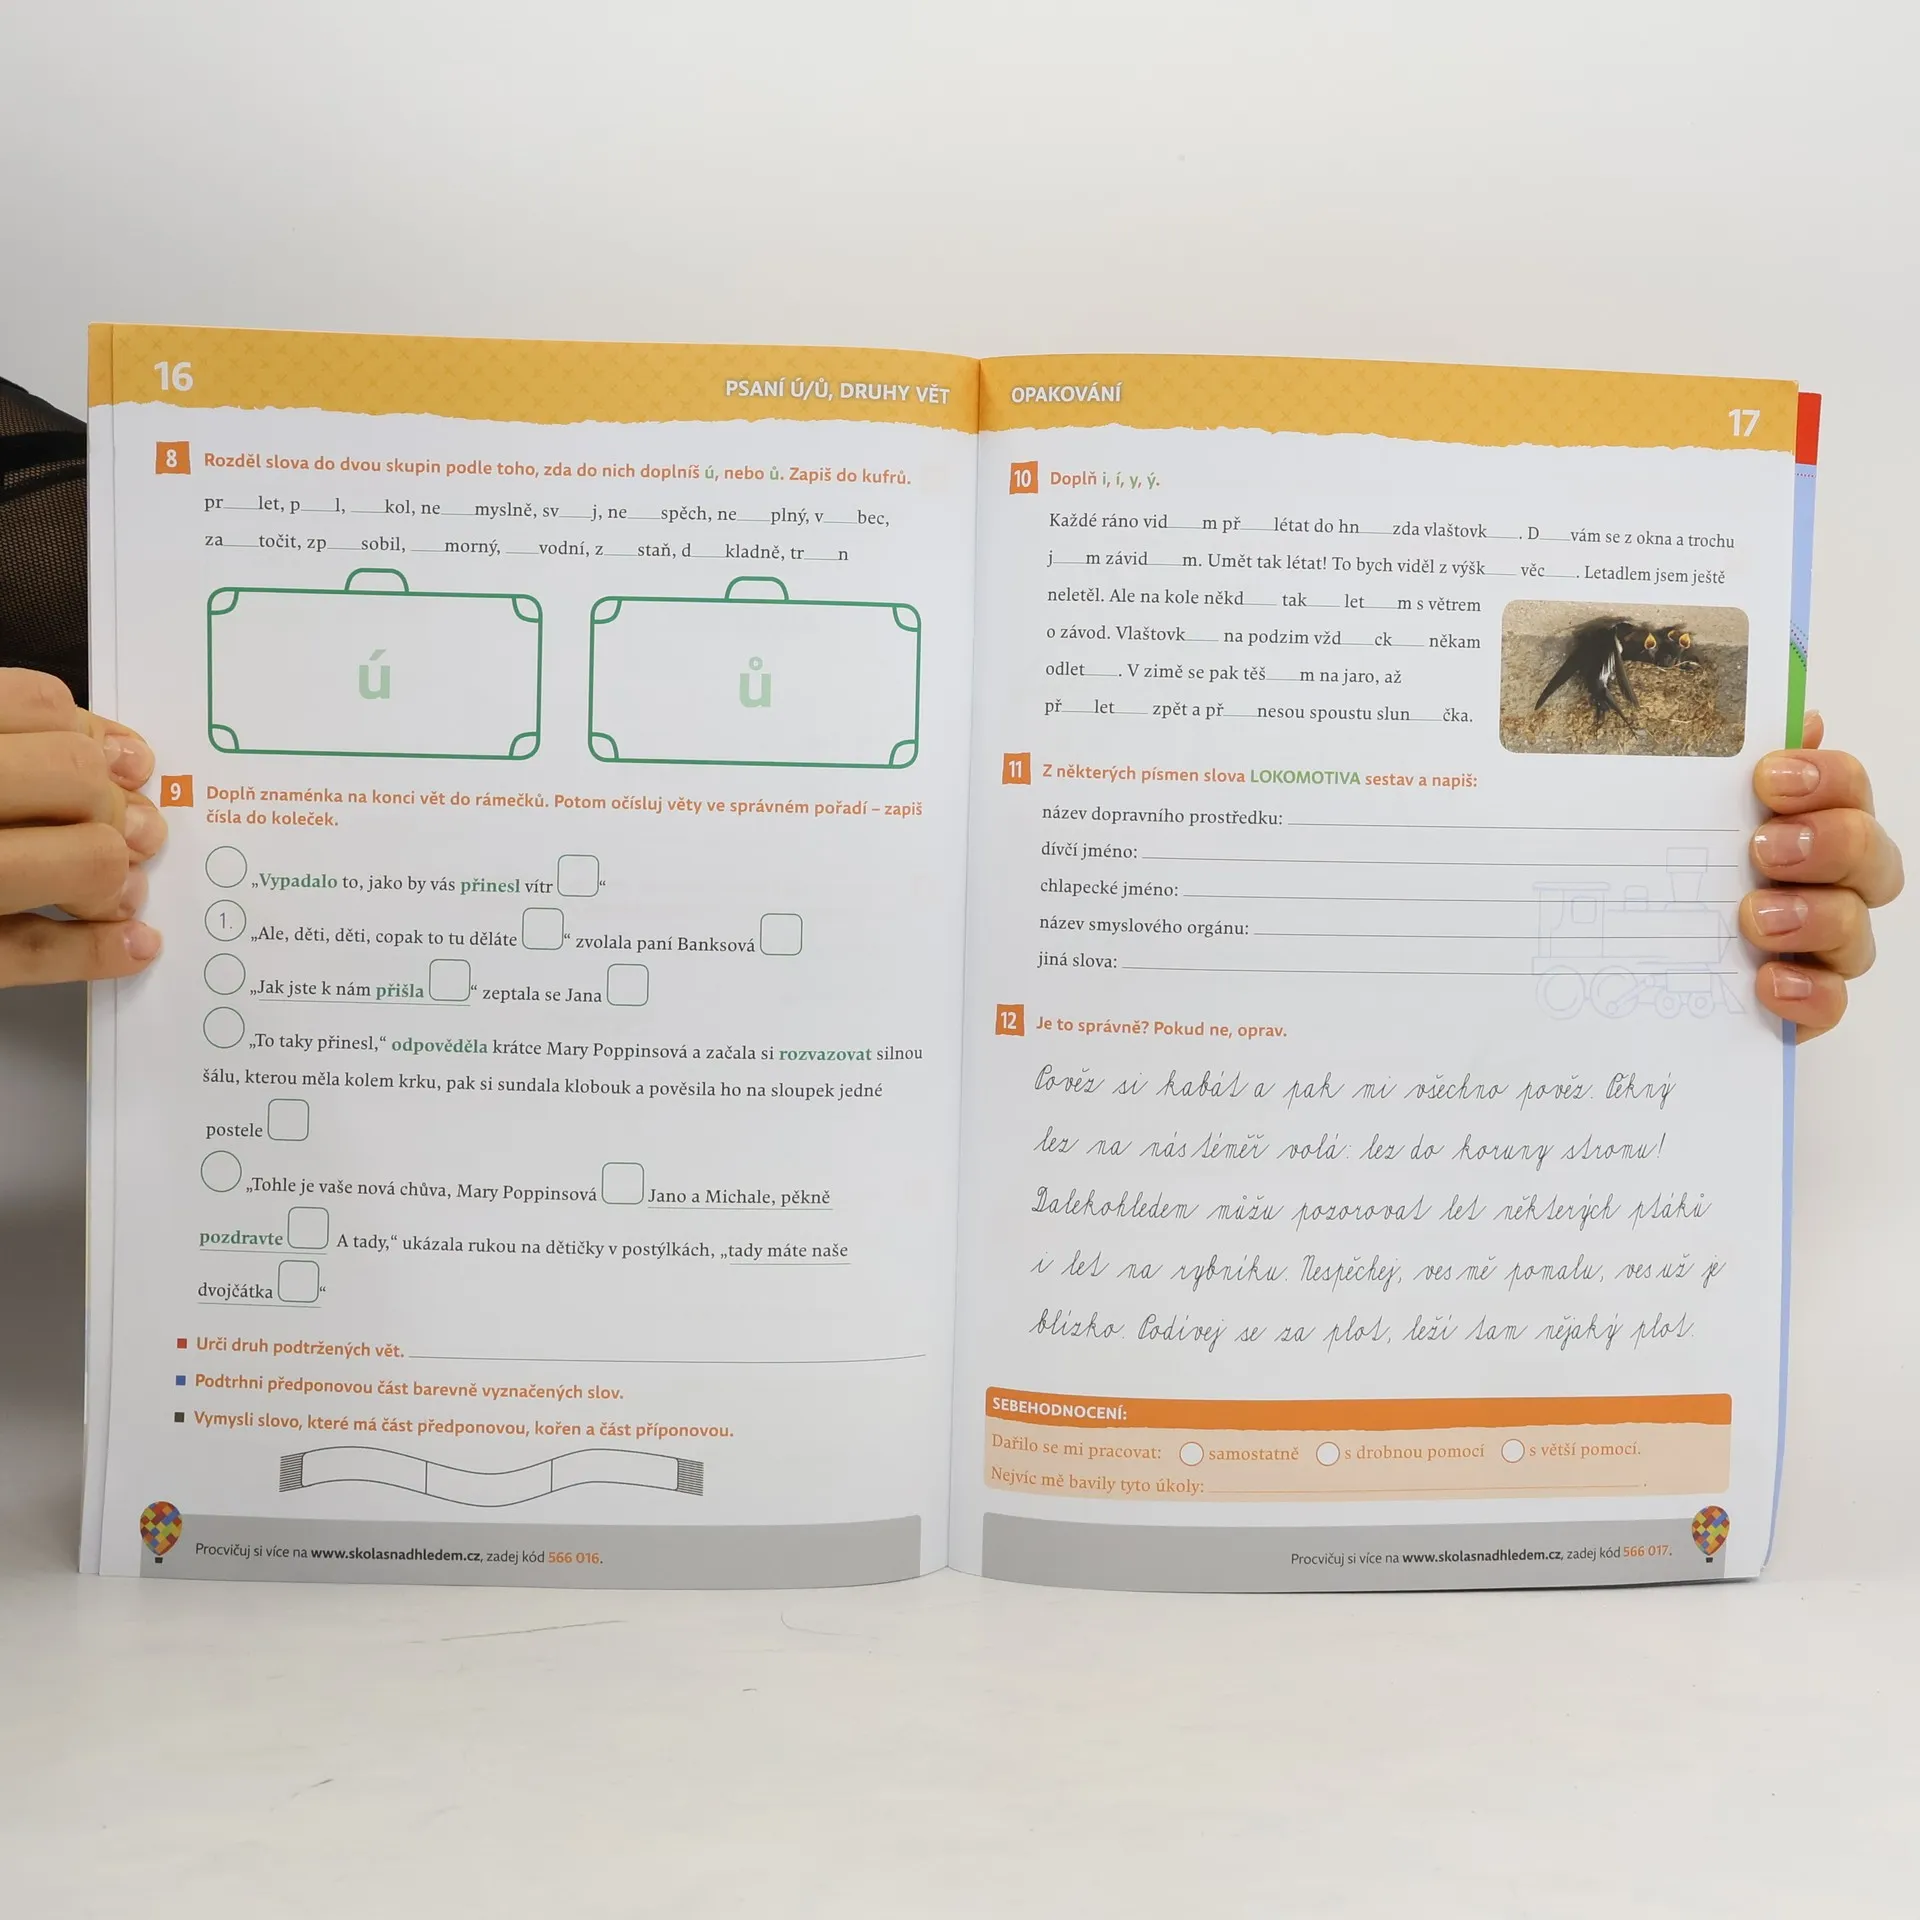 16
PSANÍ Ú/Ů, DRUHY VĚT
8 Rozděl slova do dvou skupin podle toho, zda do nich doplníš ú, nebo ů. Zapiš do kufrů.
pr___let, p___l, ___kol, ne___myslně, sv___j, ne___spěch, ne___plný, v___bec,
za___točit, zp___sobil, ___morný, ___vodní, z___staň, d___kladně, tr___n
ú ů
9 Doplň znaménka na konci vět do rámečků. Potom očísluj věty ve správném pořadí – zapiš
čísla do koleček.
„Vypadalo to, jako by vás přinesl vítr “
1. „Ale, děti, děti, copak to tu děláte “ zvolala paní Banksová
„Jak jste k nám přišla “ zeptala se Jana
„To taky přinesl,“ odpověděla krátce Mary Poppinsová a začala si rozvazovat silnou
šálu, kterou měla kolem krku, pak si sundala klobouk a pověsila ho na sloupek jedné
postele
„Tohle je vaše nová chůva, Mary Poppinsová Jano a Michale, pěkně
pozdravte A tady,“ ukázala rukou na dětičky v postýlkách, „tady máte naše
dvojčátka “
Urči druh podtržených vět. ___
Podtrhni předponovou část barevně vyznačených slov.
Vymysli slovo, které má část předponovou, kořen a část příponovou.
Procvičuj si více na www.skolasnadhledem.cz, zadej kód 566 016.
OPAKOVÁNÍ
17
10 Doplň i, í, y, ý.
Každé ráno vid___m př___létat do hn___zda vlaštovk___. D___vám se z okna a trochu
j___m závid___m. Umět tak létat! To bych viděl z výšk___ věc___. Letadlem jsem ještě
neletěl. Ale na kole někd___ tak___ let___m s větrem
o závod. Vlaštovk___ na podzim vžd___ck___ někam
odlet___. V zimě se pak těš___m na jaro, až
př___let___ zpět a př___nesou spoustu slun___čka.
11 Z některých písmen slova LOKOMOTIVA sestav a napiš:
název dopravního prostředku: ___
dívčí jméno: ___
chlapecké jméno: ___
název smyslového orgánu: ___
jiná slova: ___
12 Je to správně? Pokud ne, oprav.
Pověz si kabát a pak mi všechno pověz. Pěkný
lez na nás téměř volá: lez do koruny stromu!
Dalekohledem můžu pozorovat let některých ptáků
i let na rybníku. Nespěchej, ves mě pomalu, ves už je
blízko. Podívej se za plot, leží tam nějaký plot.
SEBEHODNOCENÍ:
Dařilo se mi pracovat: samostatně s drobnou pomocí s větší pomocí.
Nejvíc mě bavily tyto úkoly: ___.
Procvičuj si více na www.skolasnadhledem.cz, zadej kód 566 017.